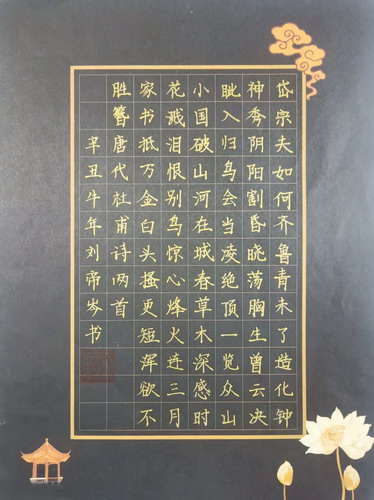 岱宗夫如何齐鲁青未了造化钟
神秀阴阳割昏晓荡胸生曾云决
眦入归鸟会当凌绝顶一览众山
小国破山河在城春草木深感时
花溅泪恨别鸟惊心烽火连三月
家书抵万金白头搔更短浑欲不
胜簪唐代杜甫诗两首
辛丑牛年刘帝岑书